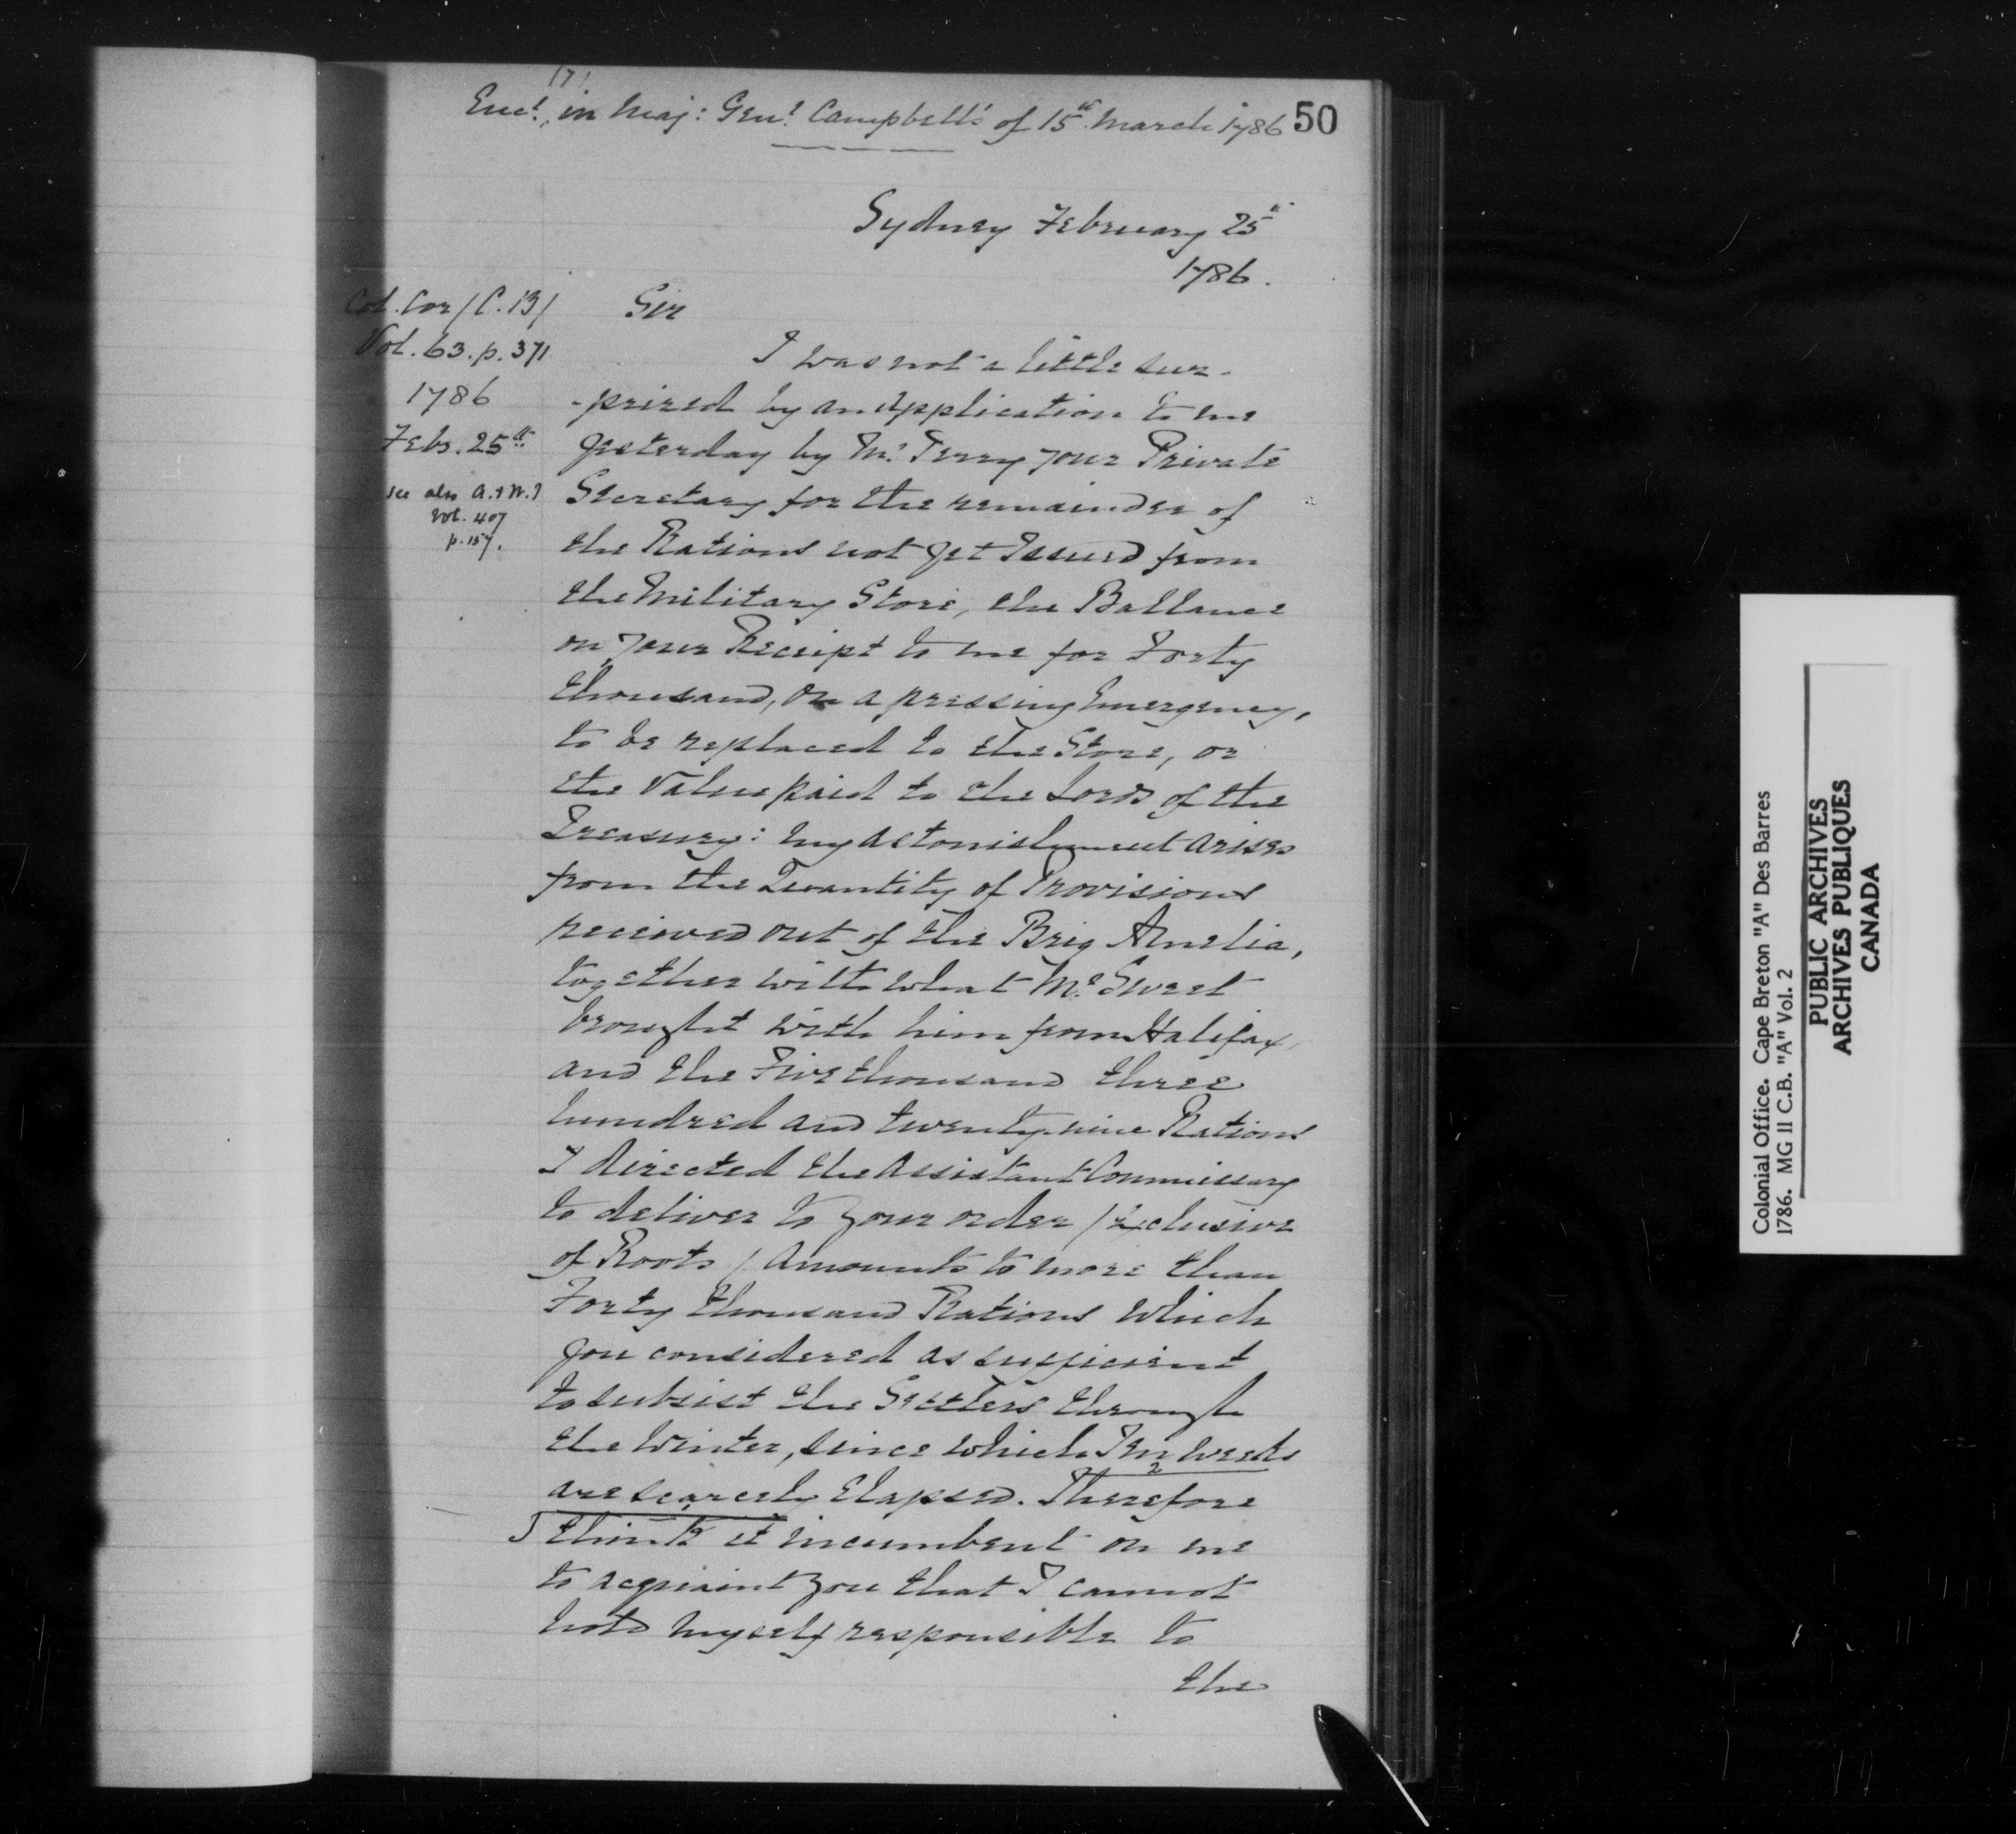 (7)
Encl. in Maj: Genl. Campbell's of 15th March 1786
50
Sydney February 25th
1786.
Col. Cor / C.B /
Vol. 63. p. 371
1786
Feby. 25th
see also A. & W. I
vol. 407
p. 157.
Sir
I was not a little sur-
-prized by an Application to me
yesterday by Mr. Perry your Private
Secretary for the remainder of
the Rations not yet Issued from
the Military Store, the Ballance
on your Receipt to me for Forty
thousand, on a pressing Emergency,
to be replaced to the Store, or
the Value paid to the Lords of the
Treasury: my astonishment arises
from the Quantity of Provisions
received out of the Brig Amelia,
together with what Mr. Sweet
brought with him from Halifax,
and the Five thousand three
hundred and twenty-nine Rations
I directed the Assistant Commissary
to deliver to your order / Exclusive
of Roots / Amounts to more than
Forty thousand Rations which
you considered as sufficient
to subsist the Settlers through
the Winter, since which Ten weeks
are scarcely Elapsed. 2 Therefore
I think it incumbent on me
to acquaint you that I cannot
hold myself responsible to
the
Colonial Office. Cape Breton "A" Des Barres
1786. MG 11 C.B. "A" Vol. 2
PUBLIC ARCHIVES
ARCHIVES PUBLIQUES
CANADA